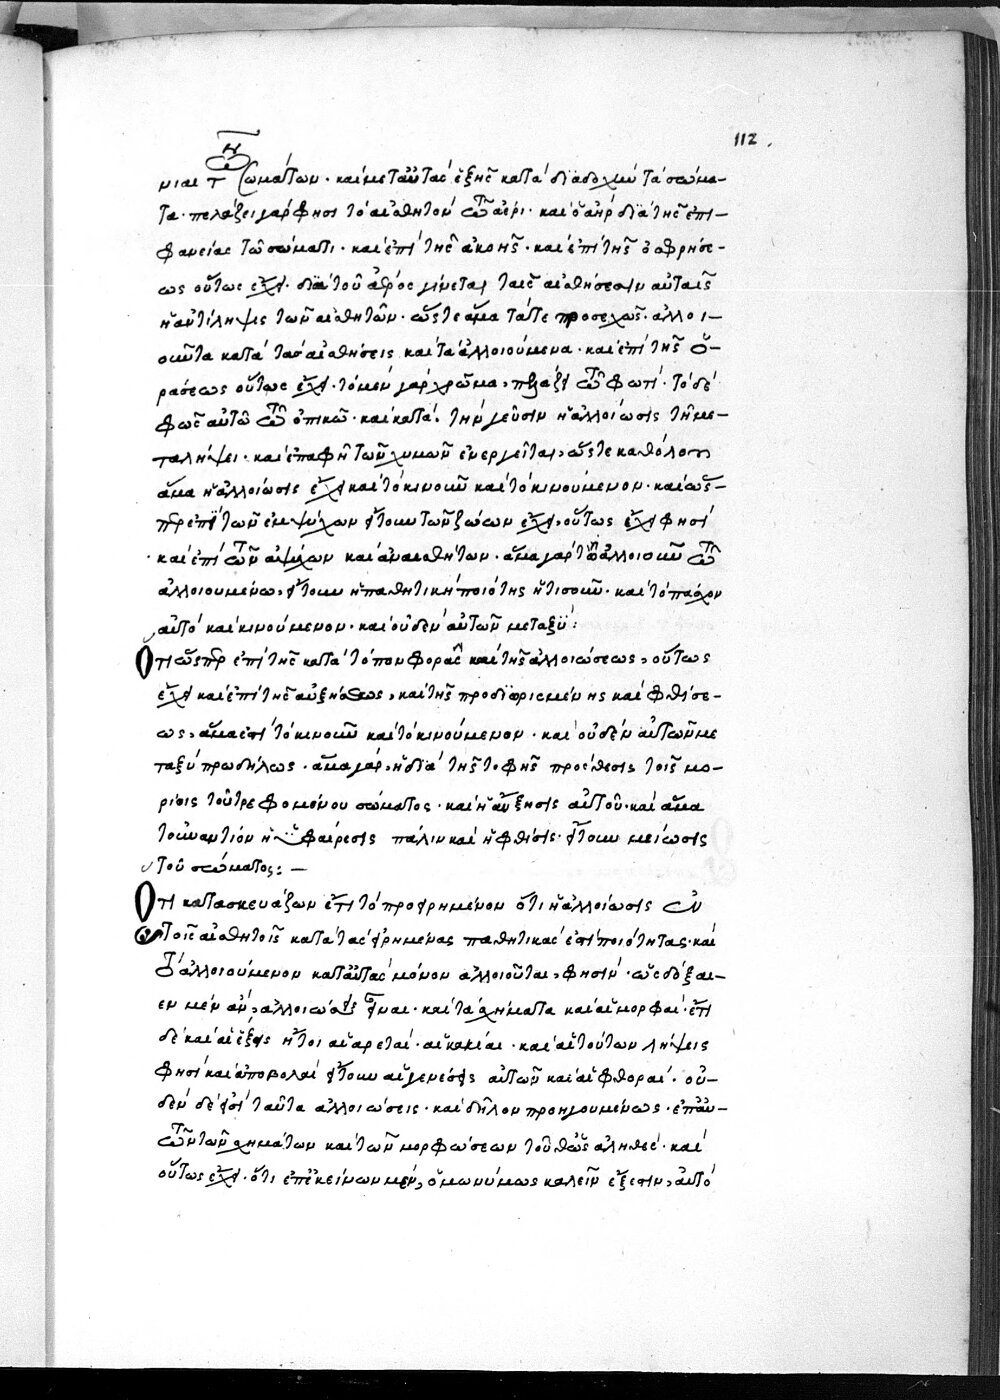 112
νιαι τ σωμάτων · καὶ μετ αὐτὰς ἑξῆς κατὰ διαδοχὴν τὰ σώμα-
τα · πελάζει γάρ φησι τὸ αἰσθητὸν τῶ ἀέρι · καὶ ὁ ἀὴρ διὰ τῆς ἐπι-
φανείας τῶ σώματι · καὶ ἐπὶ τῆς ἀκοῆς · καὶ ἐπὶ τῆς ὀσφρήσε-
ως οὕτως ἔχει · διὰ τοῦ ἀέρος γίνεται ταῖς αἰσθήσεσιν αὐταῖς
ἡ ἀντίληψις τῶν αἰσθητῶν · ὥστε ἅμα τά τε προσεχῶς · ἀλλοι-
οῦντα κατὰ τὰς αἰσθήσεις καὶ τὰ ἀλλοιούμενα · καὶ ἐπὶ τῆς ὁ-
ράσεως οὕτως ἔχει · τὸ μὲν γὰρ χρῶμα, πελάζει τῶ φωτί · τὸ δὲ
φῶς αὐτῶ τῶ ὀπτικῶ · καὶ κατὰ · τὴν γεῦσιν ἡ ἀλλοίωσις τῆ με-
ταλήψει · καὶ ἐπαφῆ τῶν χυμῶν ἐνεργεῖται, ὥστε καθόλου
ἅμα ἡ ἀλλοίωσις ἔχει καὶ τὸ κινοῦν καὶ τὸ κινούμενον · καὶ ὥσ-
περ ἐπὶ τῶν ἐμψύχων ἤτουν τῶν ζώων ἔχει, οὕτως ἔχει φησὶ
· καὶ ἐπὶ τῶν ἀψύχων καὶ ἀναισθήτων · ἅμα γὰρ τὸ ἀλλοιοῦν τῶ
ἀλλοιουμένω, ἤτουν ἡ παθητικὴ ποιότης ἡτισοῦν · καὶ τὸ πάσχον
αὐτὸ καὶ κινούμενον · καὶ οὐδὲν αὐτῶν μεταξύ:
Ὅτι ὥσπερ ἐπὶ τῆς κατὰ τόπον φορᾶς καὶ τῆς ἀλλοιώσεως, οὕτως
ἔχει καὶ ἐπὶ τῆς αὐξήσεως, καὶ τῆς προσδιωρισμένης καὶ φθίσε-
ως, ἅμα ἐστὶ τὸ κινοῦν καὶ τὸ κινούμενον · καὶ οὐδὲν αὐτῶν με
ταξὺ προδήλως · ἅμα γάρ, ἡ διὰ τῆς τροφῆς πρόσθεσις τοῖς μο-
ρίοις τοῦ τρεφομένου σώματος · καὶ ἡ αὔξησις αὐτοῦ · καὶ ἅμα
τοὐναντίον ἡ ὑφαίρεσις πάλιν καὶ ἡ φθίσις · ἤτουν μείωσις
τοῦ σώματος:–
Ὅτι κατασκευάζων ἔτι τὸ προειρημένον ὅτι ἡ ἀλλοίωσις ἐν
τοῖς αἰσθητοῖς κατὰ τὰς εἰρημένας παθητικάς ἐστι ποιότητας · καὶ
τὸ ἀλλοιούμενον κατ αὐτὰς μόνον ἀλλοιοῦται, φησὶν · ὡς δόξαι-
εν μὲν ἄν, ἀλλοιώσεις εἶναι · καὶ τὰ σχήματα καὶ αἱ μορφαί · ἔτι
δὲ καὶ αἱ ἕξεις ἤτοι αἱ ἀρεταί · αἱ κακίαι · καὶ αἱ τούτων λήψεις
φησὶ καὶ ἀποβολαὶ ἤτουν αἱ γενέσεις αὐτῶν καὶ αἱ φθοραί · οὐ-
δὲν δέ εἰσι ταῦτα ἀλλοιώσεις · καὶ δῆλον προηγουμένως · ἐπ αὐ-
τῶν τῶν σχημάτων καὶ τῶν μορφώσεων τοῦθ ὡς ἀληθές · καὶ
οὕτως ἔχει · ὅτι ἐπ ἐκείνων μέν, ὁμωνύμως καλεῖν ἔξεστιν, αὐτὸ